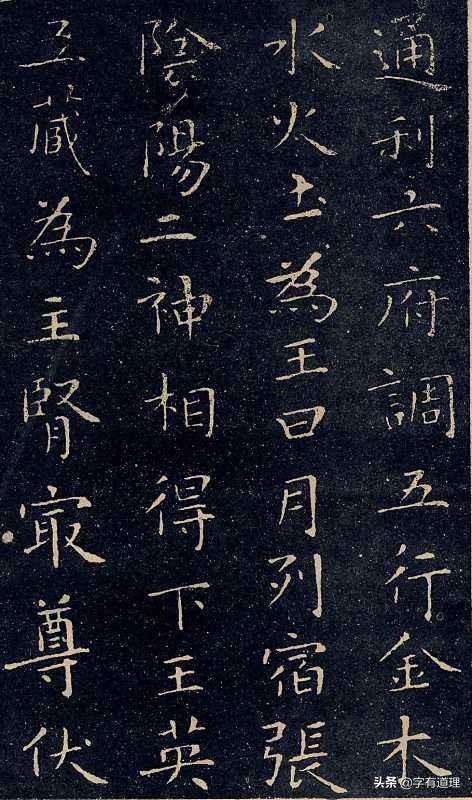 通利六府調五行金木
水火土為王日月列宿張
陰陽二神相得下王英
五藏為主腎㝡尊伏
头条 @字有道理